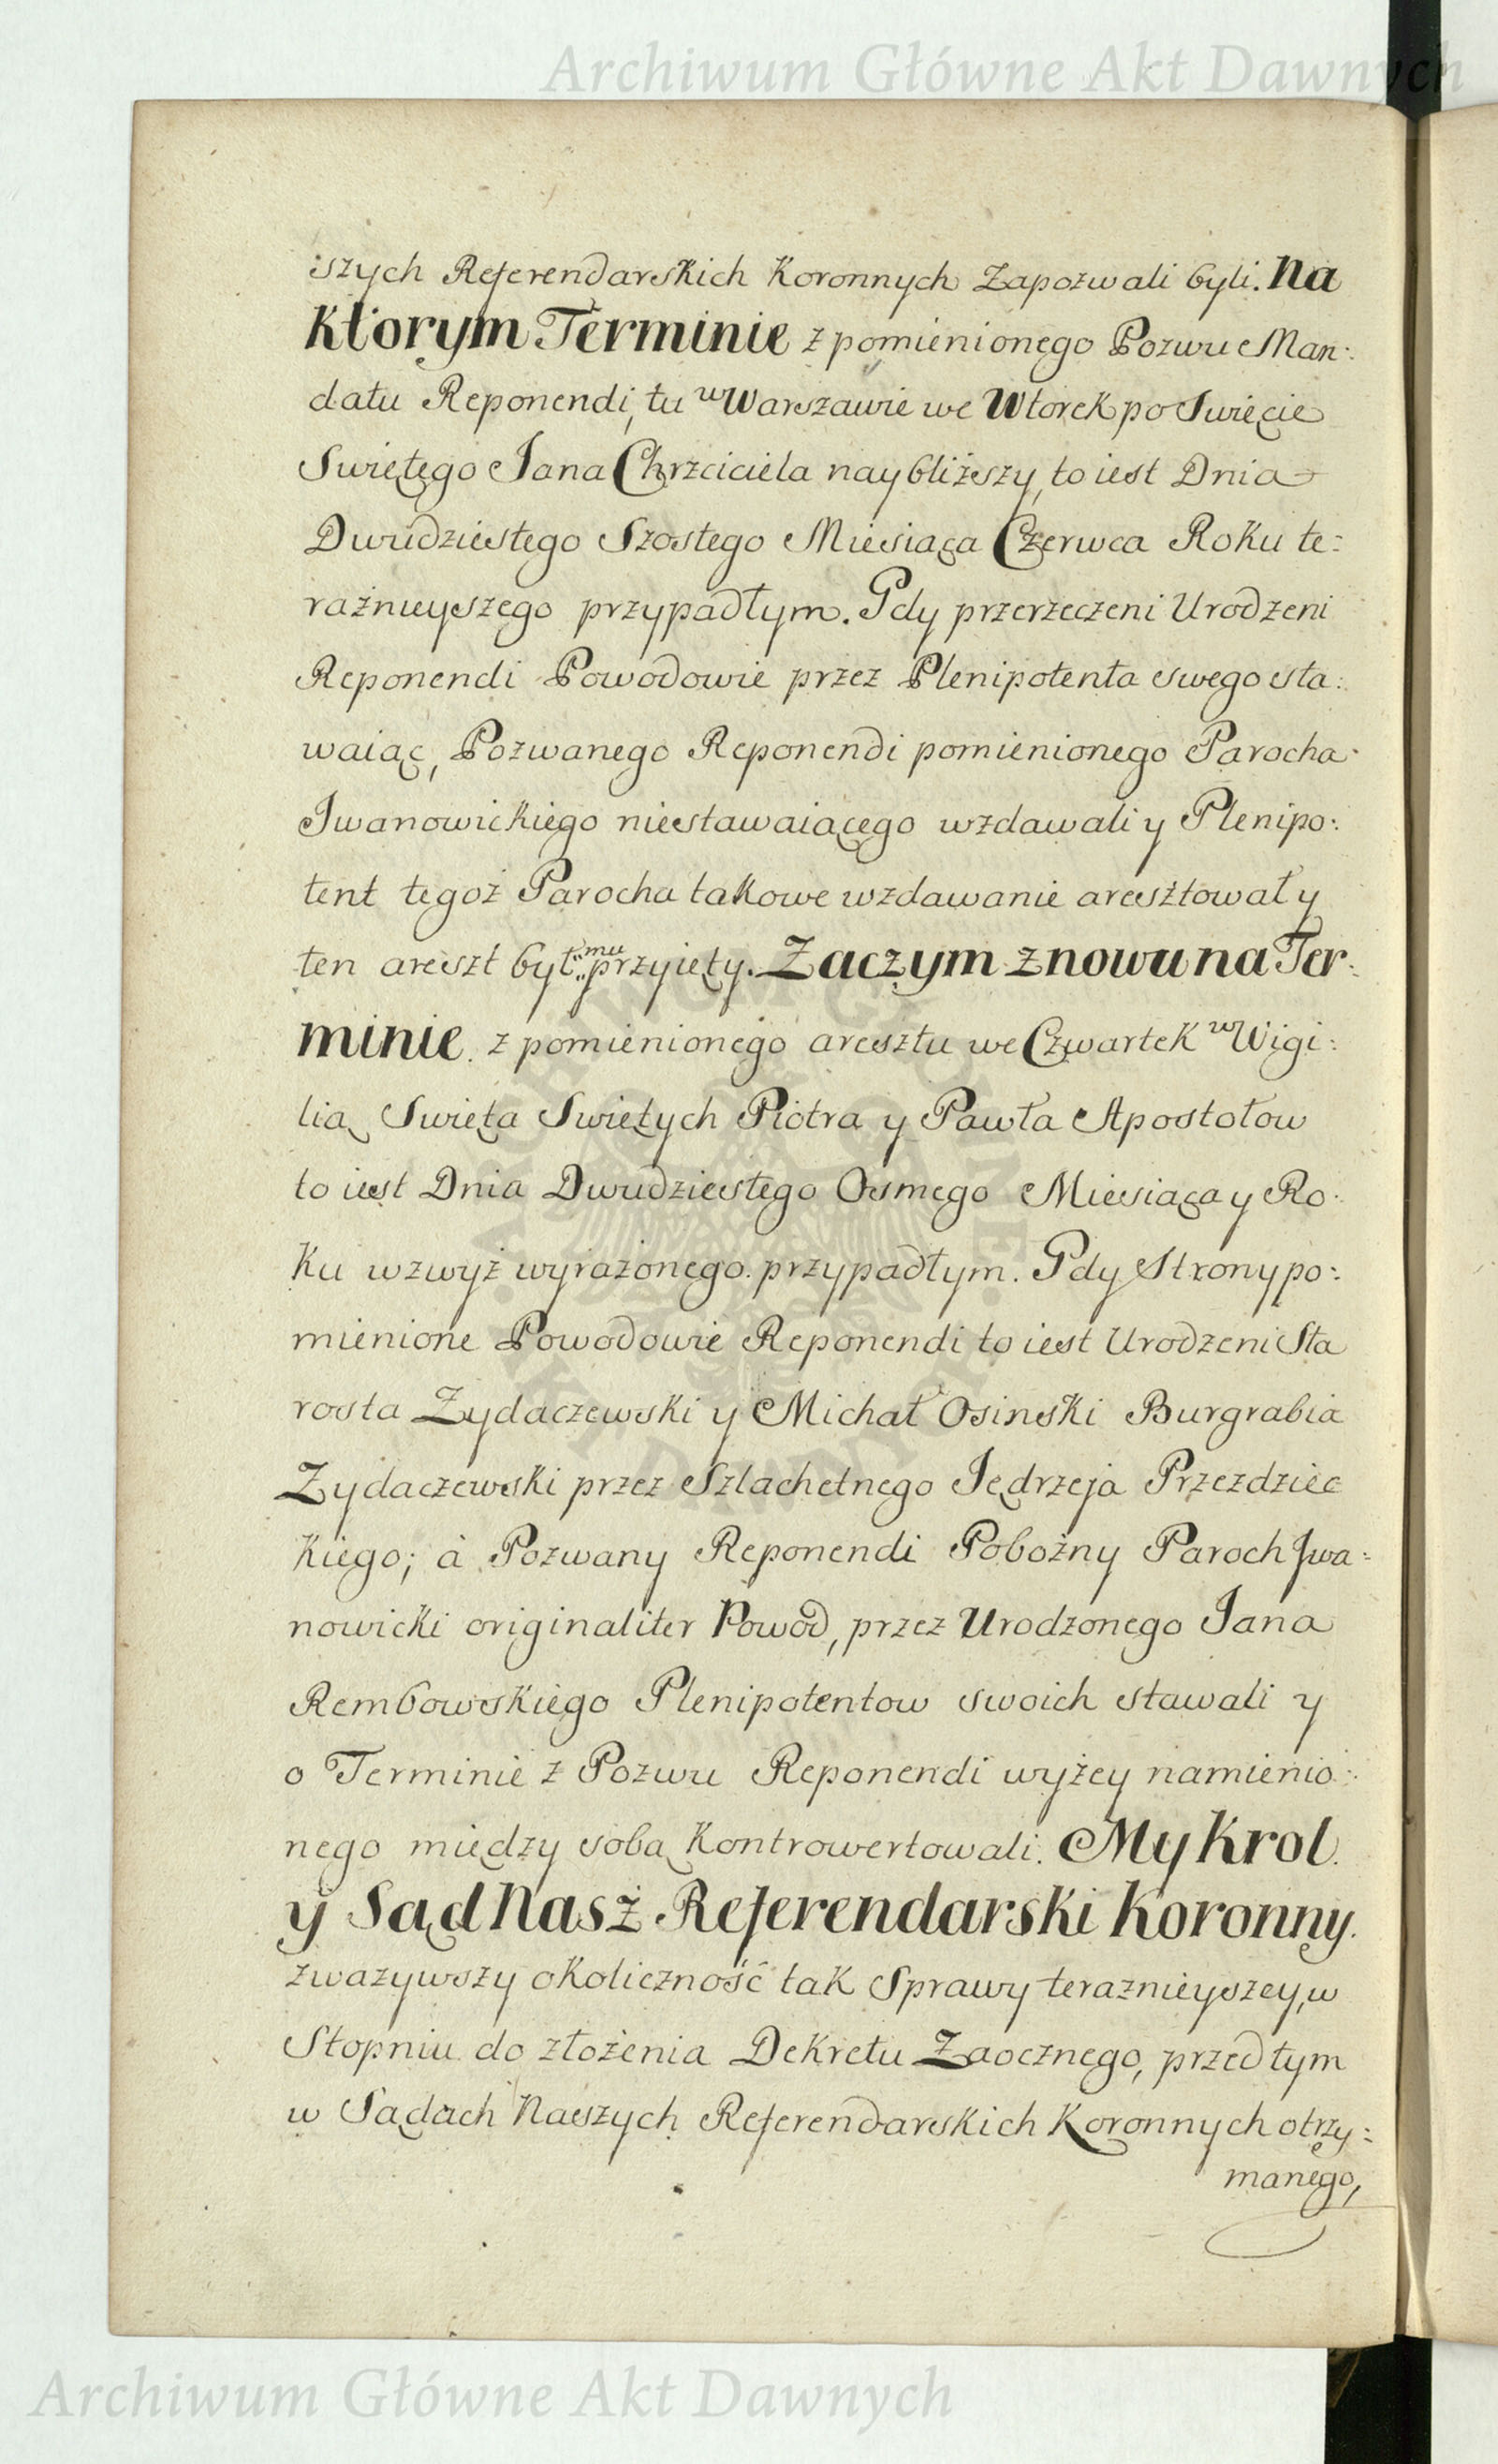 Archiwum Główne Akt Dawnych
iszych Referendarskich Koronnych Zapozwali byli. Na
ktorym Terminie z pomienionego Pozwu Man:
datu Reponendi, tu w Warszawie we Wtorek po Swięcie
Swiętego Jana Chrzciciela naybliższy, to iest Dnia
Dwudziestego Szostego Miesiąca Czerwca Roku te:
raźnieyszego przypadłym. Gdy przerzeczeni Urodzeni
Reponendi Powodowie przez Plenipotenta swego sta:
waiąc, Pozwanego Reponendi pomienionego Parocha
Iwanowickiego niestawaiącego wzdawali y Plenipo:
tent tegoż Parocha takowe wzdawanie aresztował y
ten areszt był mu przyięty. Zaczym znowu na Ter:
minie z pomienionego aresztu we Czwartek w Wigi:
lią Swięta Swiętych Piotra y Pawła Apostołow
to iest Dnia Dwudziestego Osmego Miesiąca y Ro:
ku wzwyż wyrażonego przypadłym. Gdy Strony po:
mienione Powodowie Reponendi to iest Urodzeni Sta
rosta Zydaczewski y Michał Osinski Burgrabia
Zydaczewski przez Szlachetnego Jędrzeja Przezdziec
kiego; à Pozwany Reponendi Pobożny Paroch Iwa:
nowicki originaliter Powod, przez Urodzonego Jana
Rembowskiego Plenipotentow swoich stawali y
o Terminie z Pozwu Reponendi wyżey namienio:
nego między sobą kontrowertowali. My Krol
y Sąd Nasz Referendarski Koronny.
zwazywszy okoliczność tak Sprawy teraznieyszey, w
Stopniu do złożenia Dekretu Zaocznego, przed tym
w Sądach Naszych Referendarskich Koronnych otrzy:
manego,
ARCHIWUM GŁÓWNE AKT DAWNYCH
Archiwum Główne Akt Dawnych